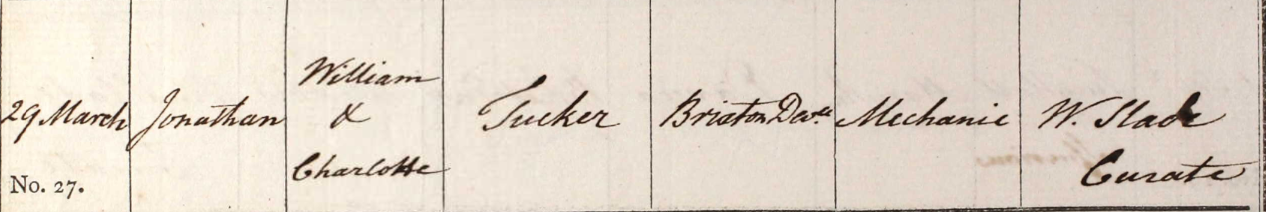 29 March
No. 27.
Jonathan
William
&
Charlotte
Tucker
Brixton Dev.
Mechanic
W. Slade
Curate